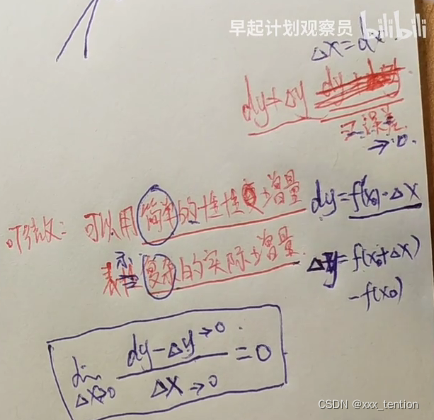 早起计划观察员 bilibili
Δx=dx.
dy≠Δy
误差
→0.
可微: 可以用简单的线性增量 dy=f'(x₀)·Δx
表示复杂的实际增量. Δy=f(x₀+Δx)
-f(x₀)
lim Δx→0 (dy-Δy→0)/(Δx→0) =0
CSDN @xxx_tention